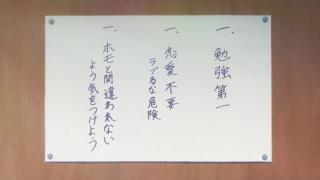 一、勉強第一
一、恋愛不要
ラブるな危険
一、ホモと間違われない
よう気をつけよう